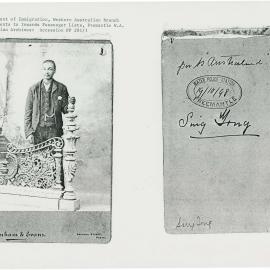 of Immigration, Western Australian Branch
Inwards Passenger Lists, Fremantle W.A.
Archives: Accession PP 201/1
& Evans.
per SS Australind
WATER POLICE STATION
19/10/98
FREEMANTLE
Sing Tong
Sing Tong